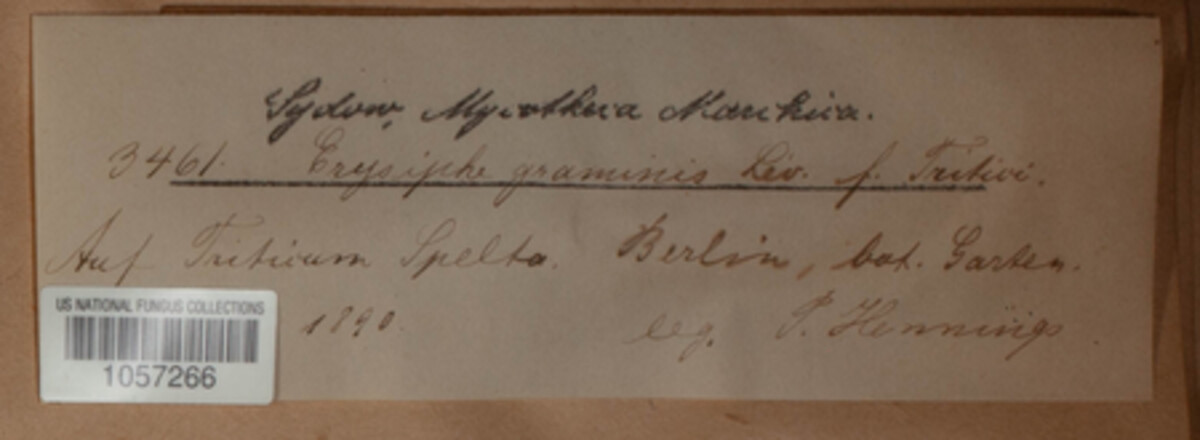 Sydow, Mycotheca Marchica.
3461. Erysiphe graminis Lév. f. Tritici.
Auf Triticum Spelta. Berlin, bot. Garten.
1890. leg. P. Hennings
US NATIONAL FUNGUS COLLECTIONS
1057266